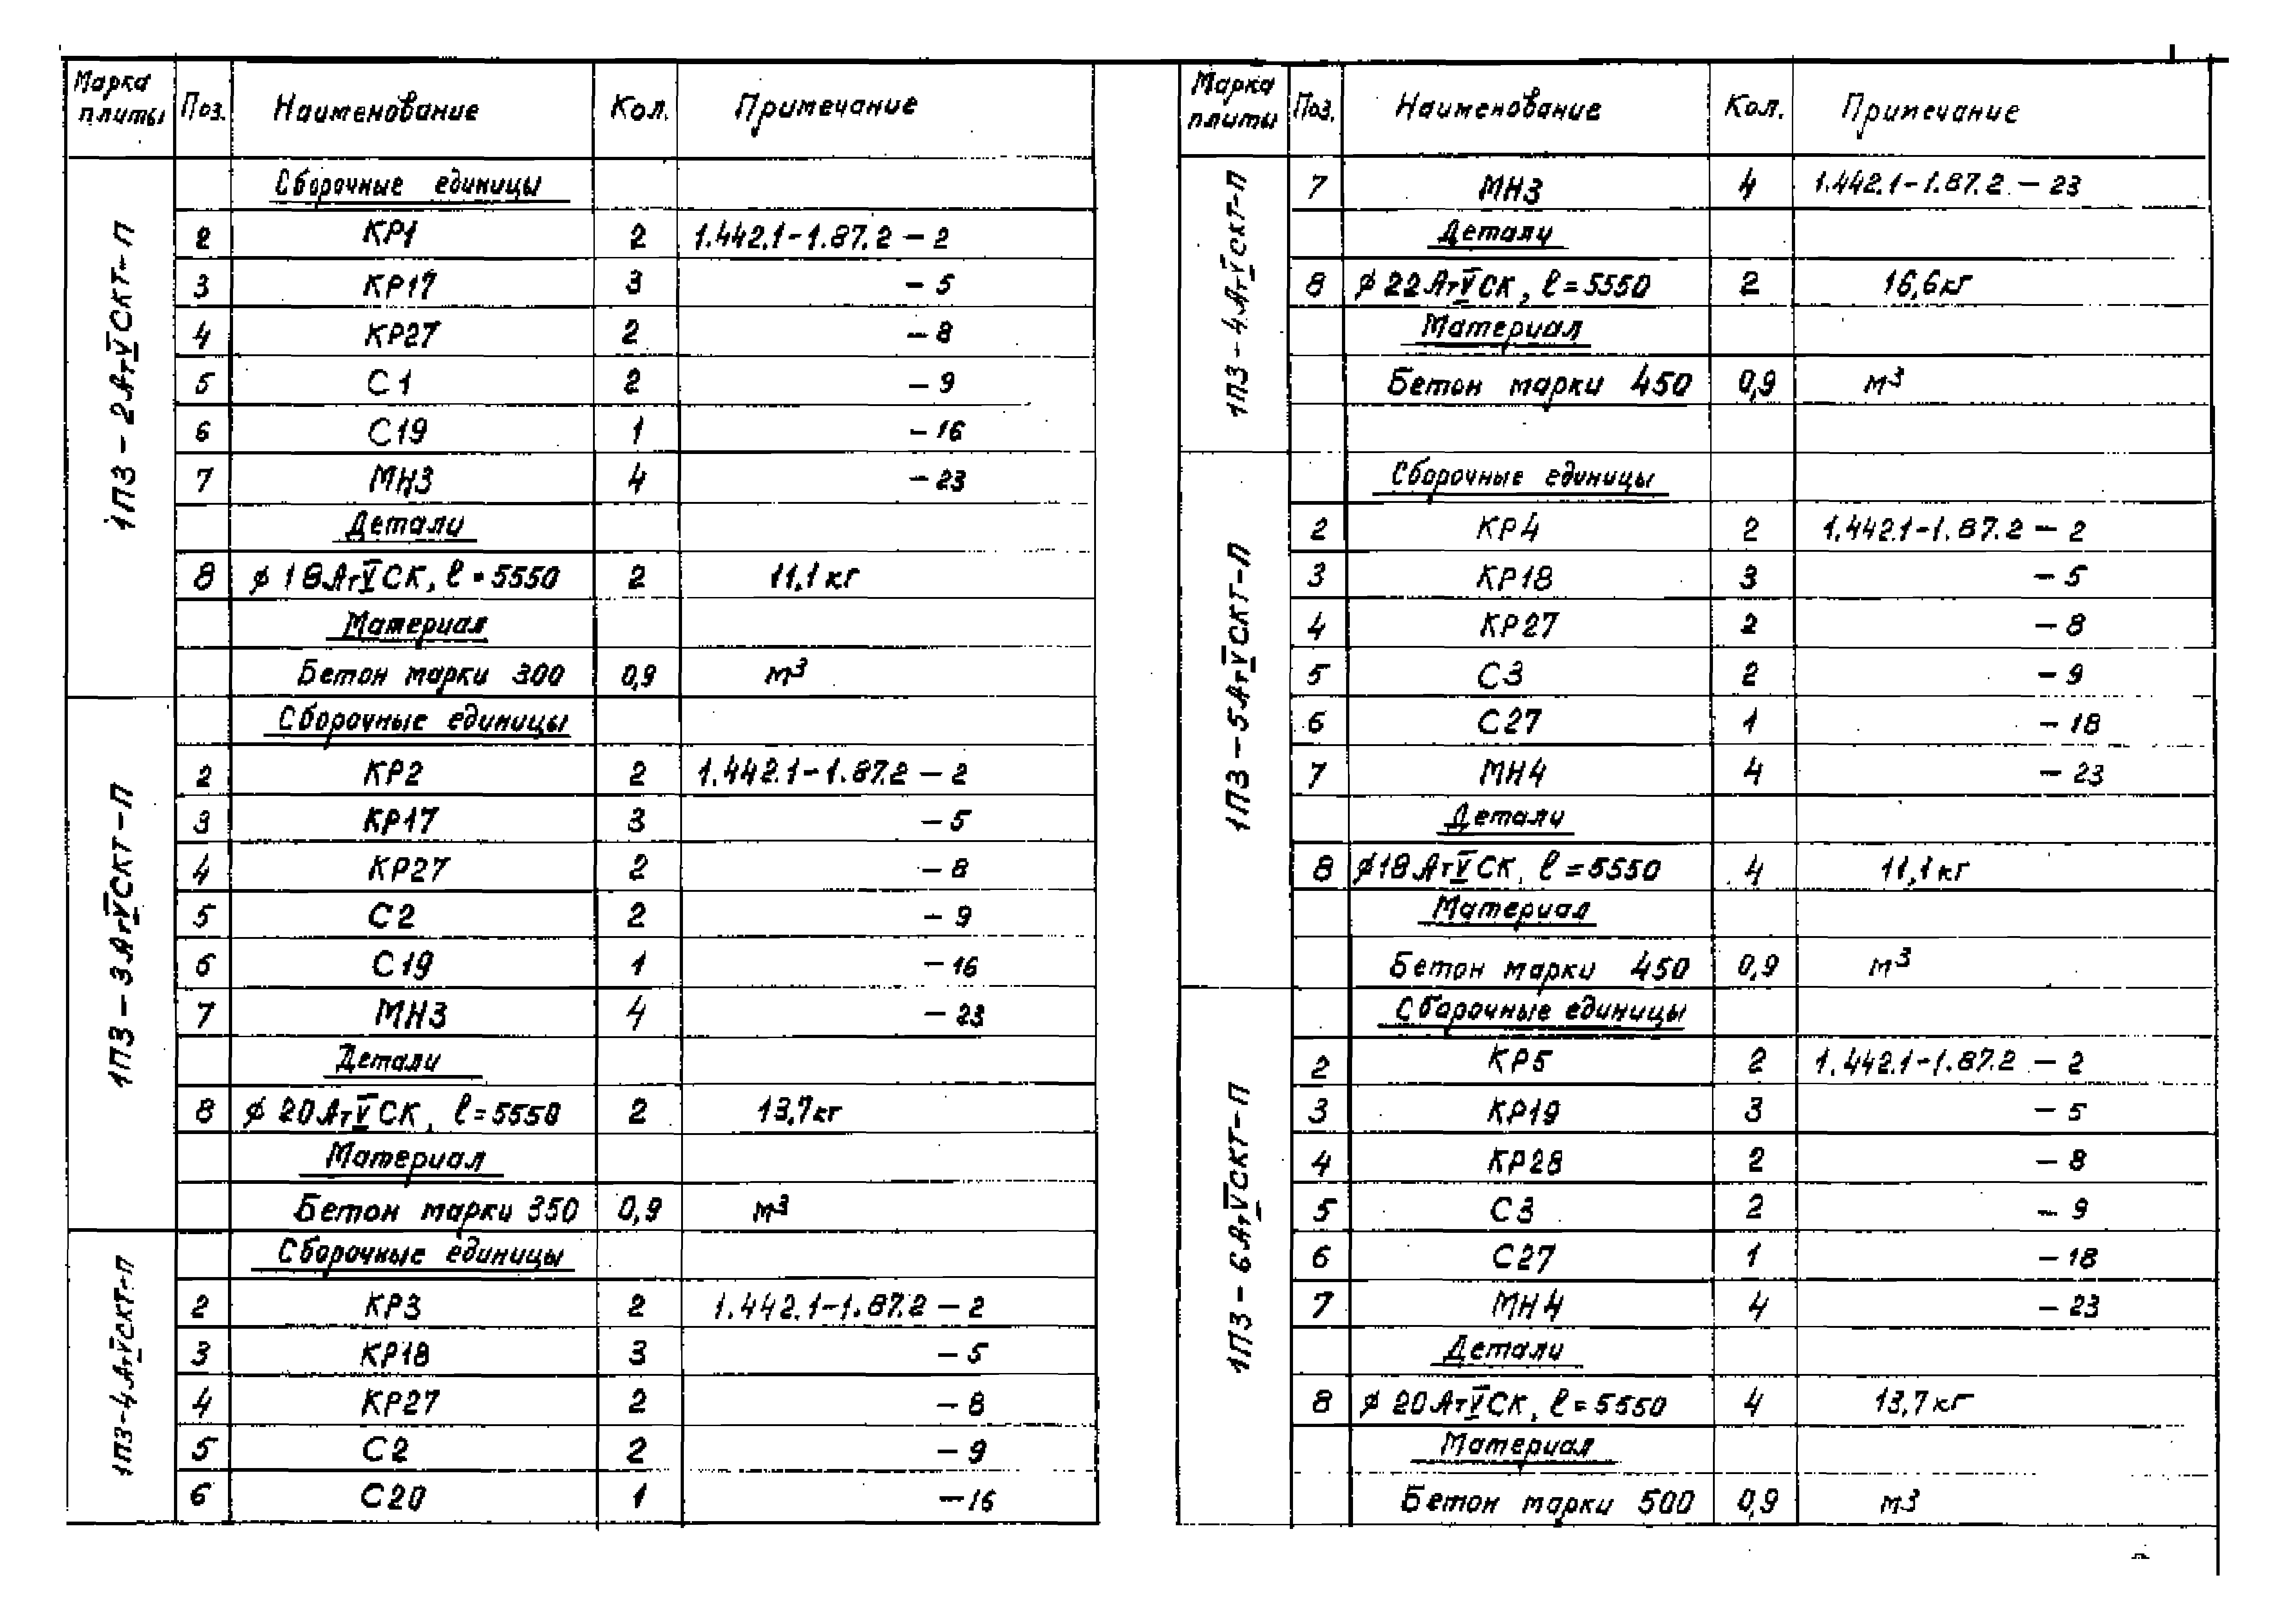 Марка плиты Поз. Наименование Кол. Примечание
1П3-2АтVСКТ-П
Сборочные единицы
2 КР1 2 1.442.1-1.87.2 - 2
3 КР17 3 - 5
4 КР27 2 - 8
5 С1 2 - 9
6 С19 1 - 16
7 МН3 4 - 23
Детали
8 ϕ 18АтVСК, ℓ=5550 2 11,1 кг
Материал
Бетон марки 300 0,9 м³
1П3-3АтVСКТ-П
Сборочные единицы
2 КР2 2 1.442.1-1.87.2 - 2
3 КР17 3 - 5
4 КР27 2 - 8
5 С2 2 - 9
6 С19 1 - 16
7 МН3 4 - 23
Детали
8 ϕ 20АтVСК, ℓ=5550 2 13,7 кг
Материал
Бетон марки 350 0,9 м³
1П3-4АтVСКТ-П
Сборочные единицы
2 КР3 2 1.442.1-1.87.2 - 2
3 КР18 3 - 5
4 КР27 2 - 8
5 С2 2 - 9
6 С20 1 - 16
Марка плиты Поз. Наименование Кол. Примечание
1П3-4АтVСКТ-П
7 МН3 4 1.442.1-1.87.2 - 23
Детали
8 ϕ 22АтVСК, ℓ=5550 2 16,6 кг
Материал
Бетон марки 450 0,9 м³
1П3-5АтVСКТ-П
Сборочные единицы
2 КР4 2 1.442.1-1.87.2 - 2
3 КР18 3 - 5
4 КР27 2 - 8
5 С3 2 - 9
6 С27 1 - 18
7 МН4 4 - 23
Детали
8 ϕ18АтVСК, ℓ=5550 4 11,1 кг
Материал
Бетон марки 450 0,9 м³
1П3-6АтVСКТ-П
Сборочные единицы
2 КР5 2 1.442.1-1.87.2 - 2
3 КР19 3 - 5
4 КР28 2 - 8
5 С3 2 - 9
6 С27 1 - 18
7 МН4 4 - 23
Детали
8 ϕ 20АтVСК, ℓ=5550 4 13,7 кг
Материал
Бетон марки 500 0,9 м3